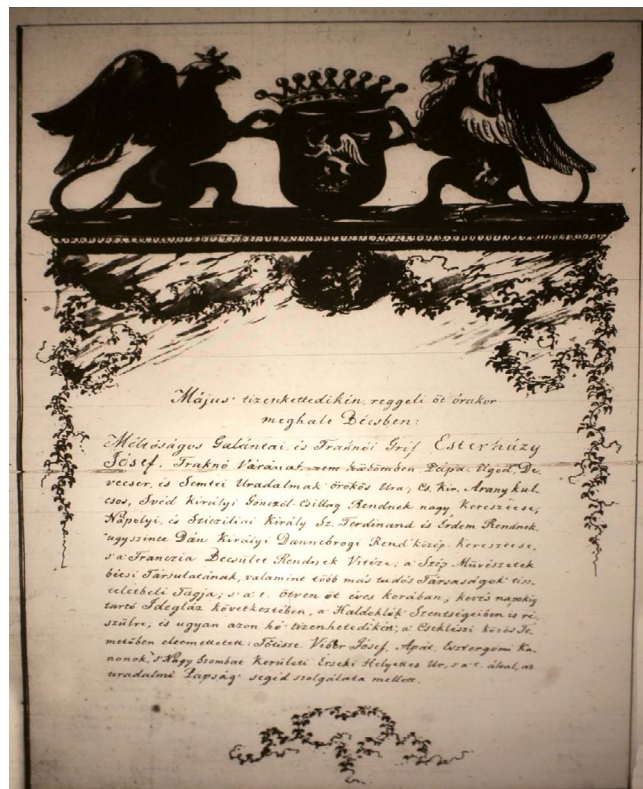 Május' tizenkettedikén, reggeli öt órakor
meghalt Bécsben:
Méltóságos Galántai, és Fraknói Gróf Esterházy
Jósef, Fraknó Várának nem különben, Pápa, Ugod, De-
vecser, és Semtei Uradalmak' örökös Ura; Cs. Kir. Arany kul-
csos, Svéd Királyi Gönczöl-Csillag Rendnek nagy Keresztese,
Nápolyi, és Sziczíliai Király Sz. Ferdinand és Érdem Rendnek
úgyszinte Dán Királyi Dannebrogi Rend' közép Keresztese,
s' a' Franczia Becsület Rendnek Vitéze; a' Szép Művészetek
bécsi Társulatának, valamint több más tudós Társaságok' tisz-
teletbeli Tagja; s' a' t. ötven öt éves korában, kevés napokig
tartó Idegláz következtében, a' Haldoklók Szentségeiben is ré-
szülve, és ugyan azon hó' tizenhetedikén, a' Cseklészi közös Te-
metőben eltemettetett: Főtiszt. Viber Jósef, Apát, Esztergomi Ka-
nonok, 's Nagy Szombat Kerületi Érseki Helyettes Úr, s' a' t. által, az
uradalmi Papság' segéd szolgálata mellett.